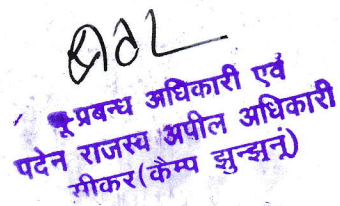 भू-प्रबन्ध अधिकारी एवं
पदेन राजस्व अपील अधिकारी
सीकर(कैम्प झुन्झुनूं)